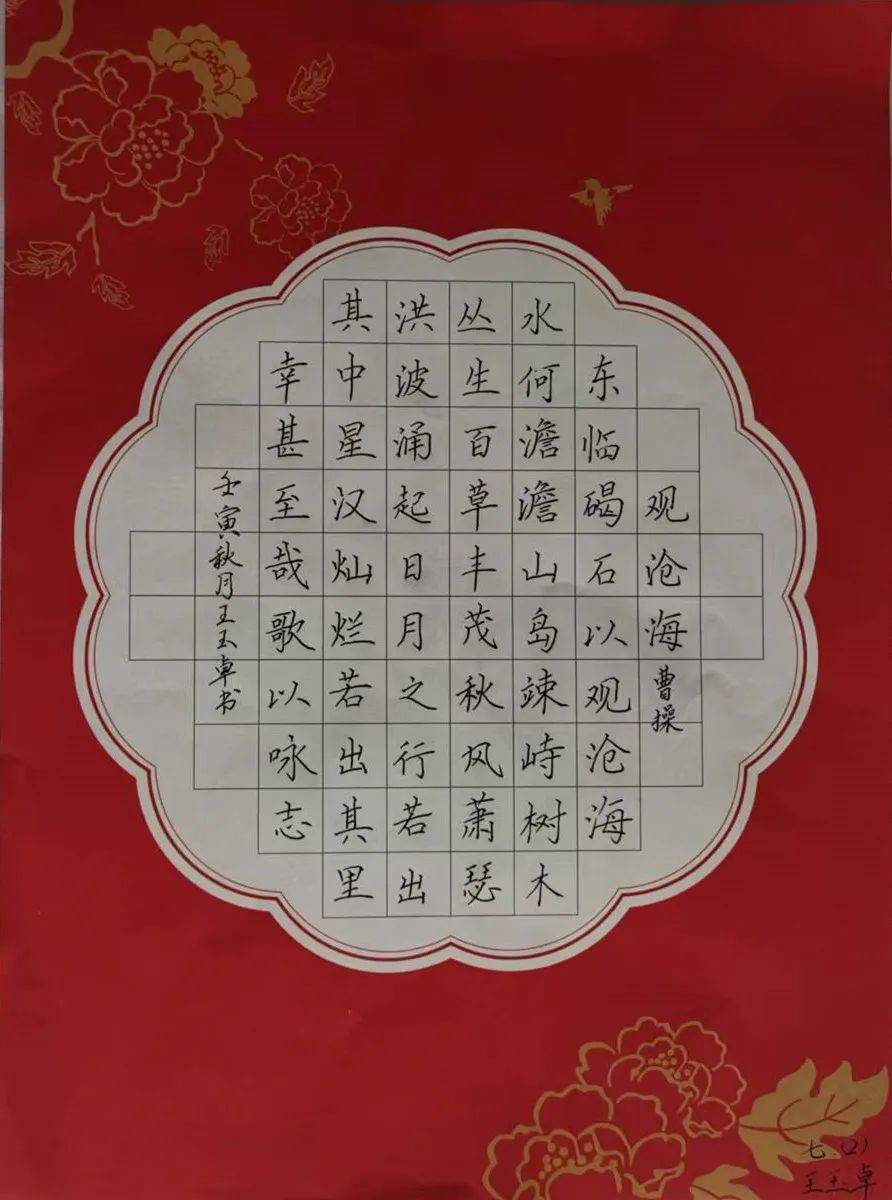 观沧海 曹操
东临碣石以观沧海
水何澹澹山岛竦峙树木
丛生百草丰茂秋风萧瑟
洪波涌起日月之行若出
其中星汉灿烂若出其里
幸甚至哉歌以咏志
壬寅秋月王玉卓书
七.(2)
王玉卓